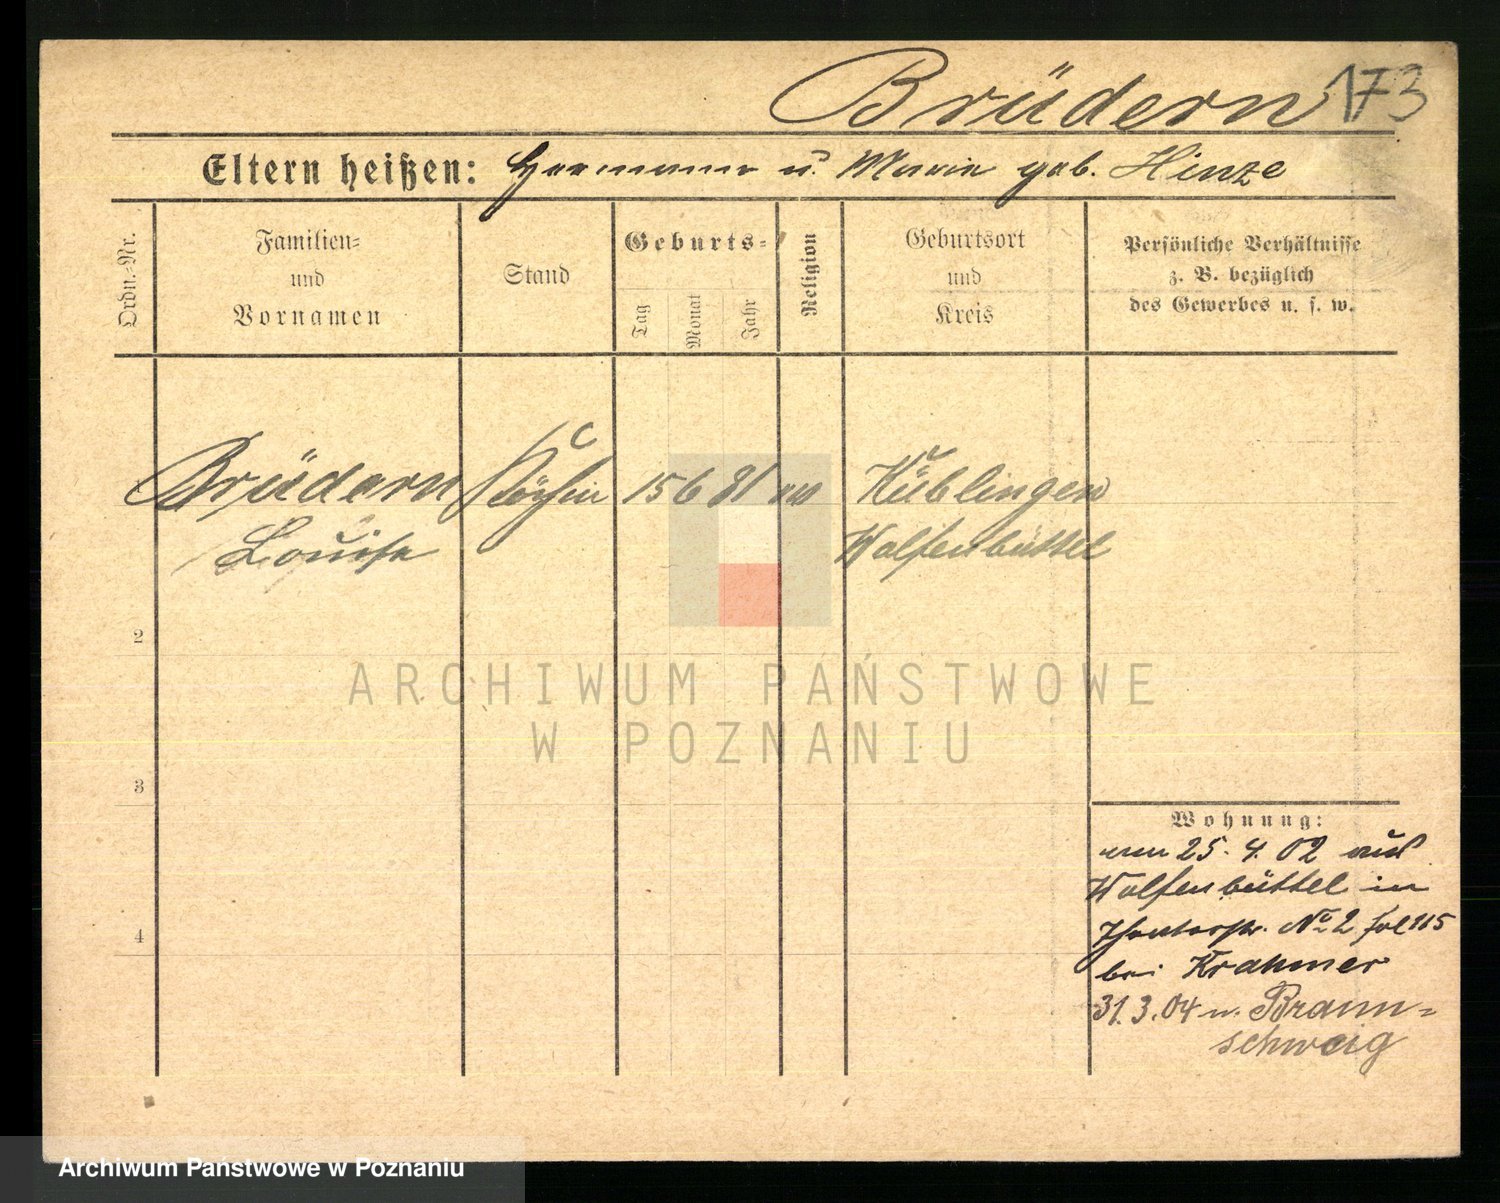 Brüdern 173
Eltern heißen: Hermann u. Marie geb. Hinze
Ordn.-Nr.
Familien-
und
Vornamen
Stand
Geburts-
Tag
Monat
Jahr
Religion
Geburtsort
und
Kreis
Persönliche Verhältnisse
z. B. bezüglich
des Gewerbes u. s. w.
Brüdern Köchin 15 6 81 ev Küblingen
Louise Wolfenbüttel
2
ARCHIWUM PAŃSTWOWE
W POZNANIU
3
Wohnung:
am 25. 4. 02 aus
Wolfenbüttel in
No 2 fol 115
4
bei Krahmer
31.3.04 n. Braun=
schweig
Archiwum Państwowe w Poznaniu